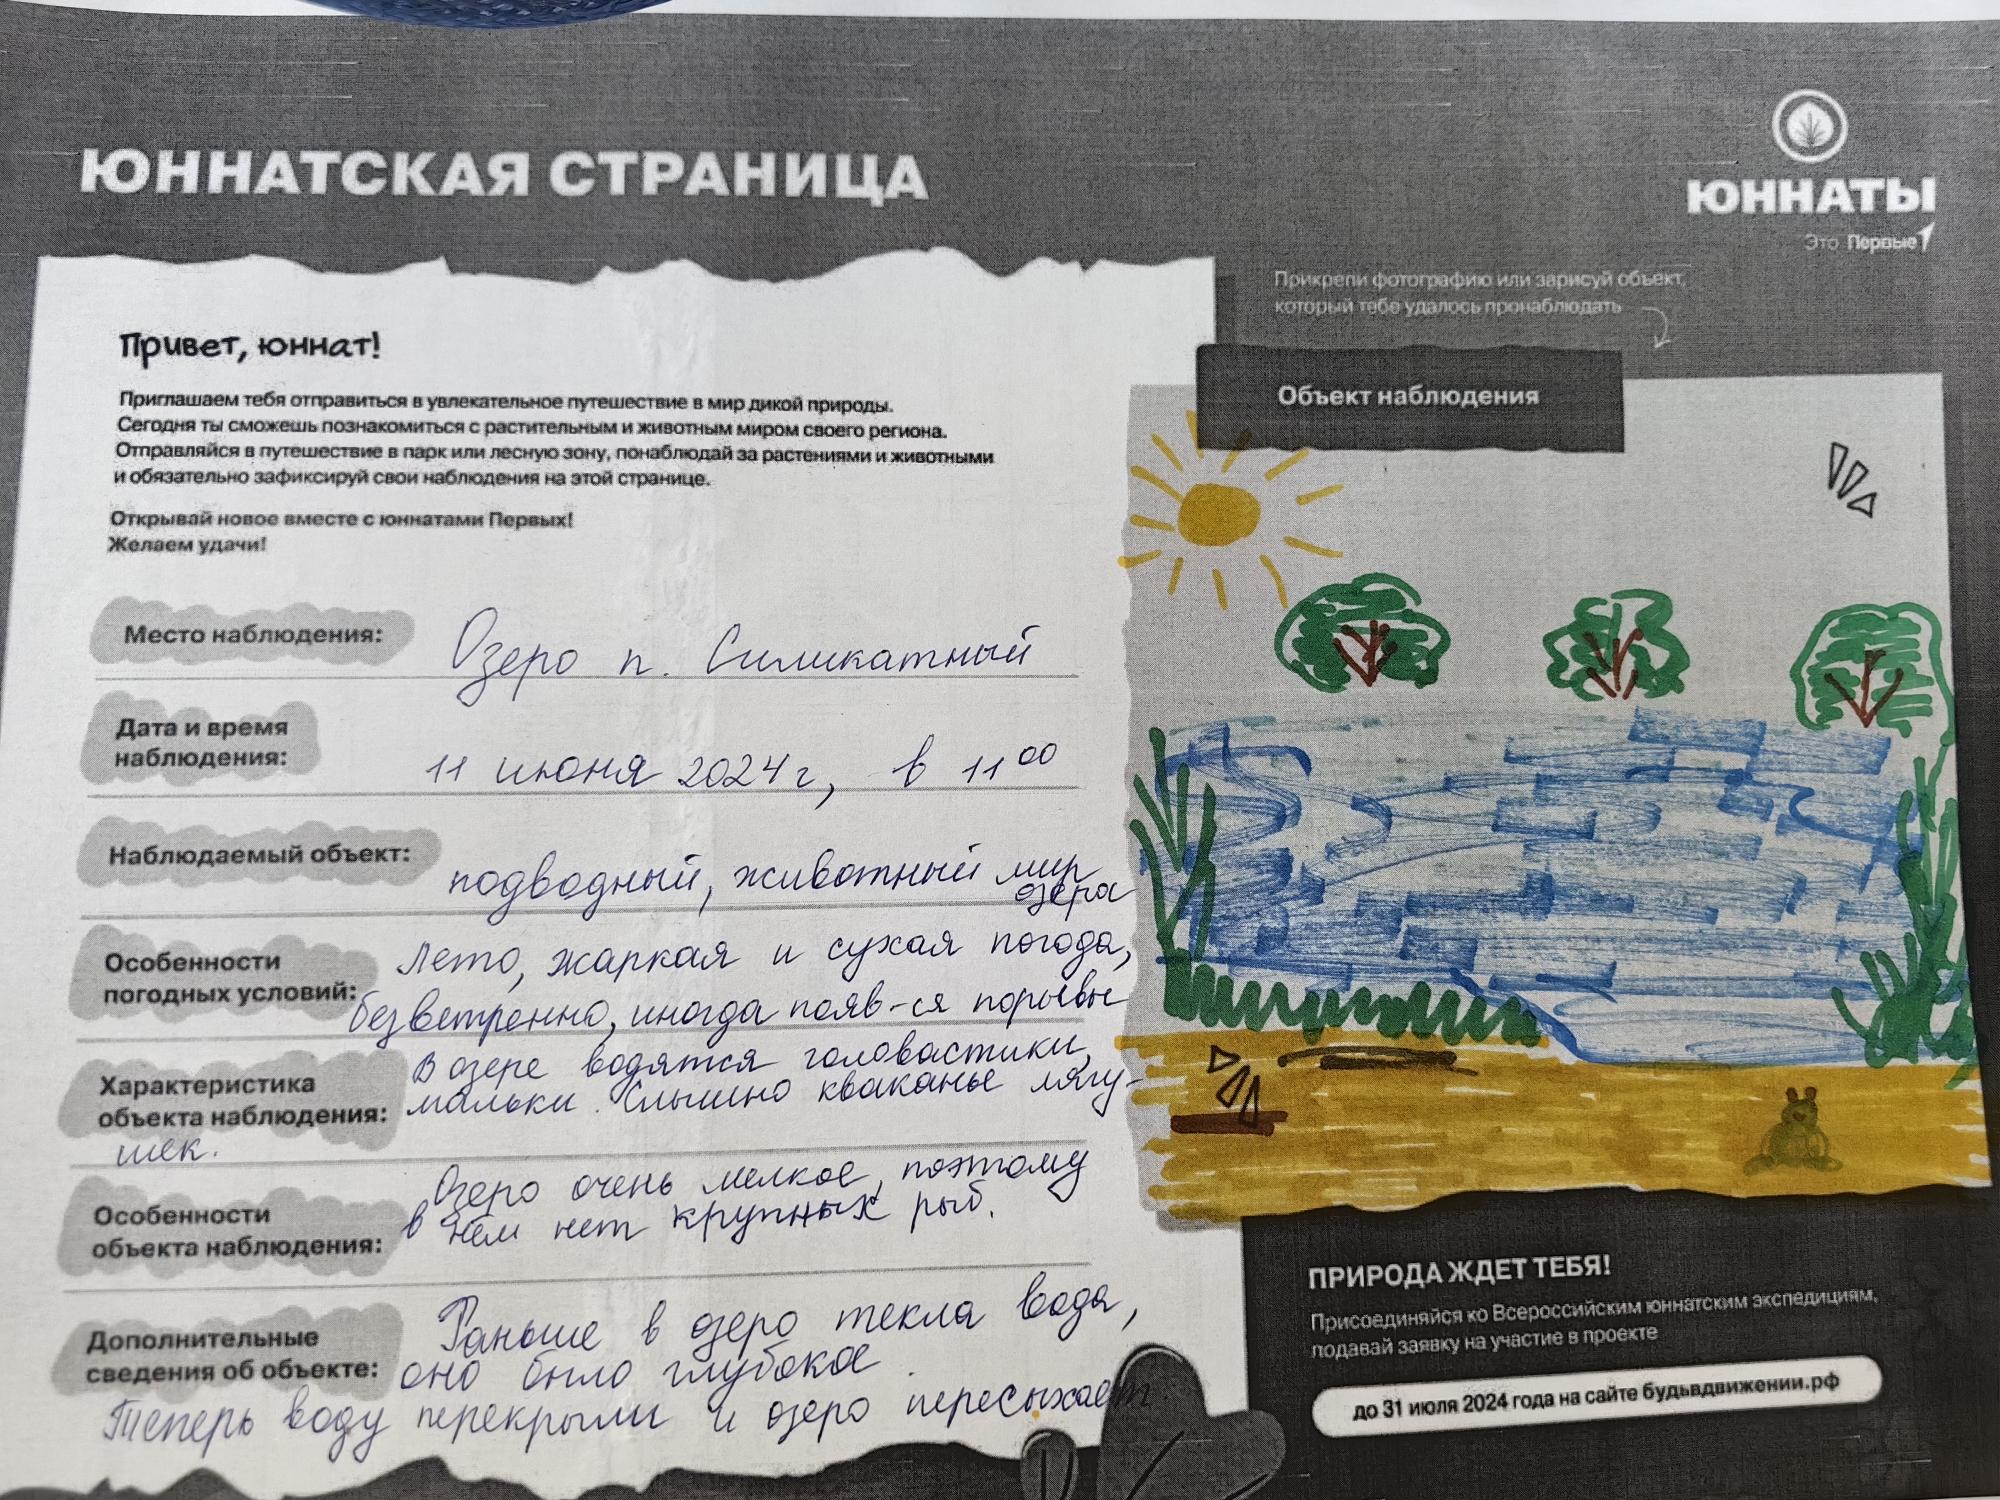 ЮННАТСКАЯ СТРАНИЦА
ЮННАТЫ
Это Первые
Прикрепи фотографию или зарисуй объект,
который тебе удалось пронаблюдать
Объект наблюдения
Привет, юннат!
Приглашаем тебя отправиться в увлекательное путешествие в мир дикой природы.
Сегодня ты сможешь познакомиться с растительным и животным миром своего региона.
Отправляйся в путешествие в парк или лесную зону, понаблюдай за растениями и животными
и обязательно зафиксируй свои наблюдения на этой странице.
Открывай новое вместе с юннатами Первых!
Желаем удачи!
Место наблюдения: Озеро п. Силикатный
Дата и время
наблюдения: 11 июня 2024 г, в 11 00
Наблюдаемый объект: подводный, животный мир
озера
Особенности
погодных условий:
Лето, жаркая и сухая погода,
безветренно, иногда появ-ся порывы
Характеристика
объекта наблюдения:
В озере водятся головастики,
мальки. Слышно кваканье лягу-
шек.
Особенности
объекта наблюдения:
Озеро очень мелкое, поэтому
в нем нет крупных рыб.
Дополнительные
сведения об объекте:
Раньше в озеро текла вода,
оно было глубокое.
Теперь воду перекрыли и озеро пересыхает.
ПРИРОДА ЖДЕТ ТЕБЯ!
Присоединяйся ко Всероссийским юннатским экспедициям,
подавай заявку на участие в проекте
до 31 июля 2024 года на сайте будьвдвижении.рф